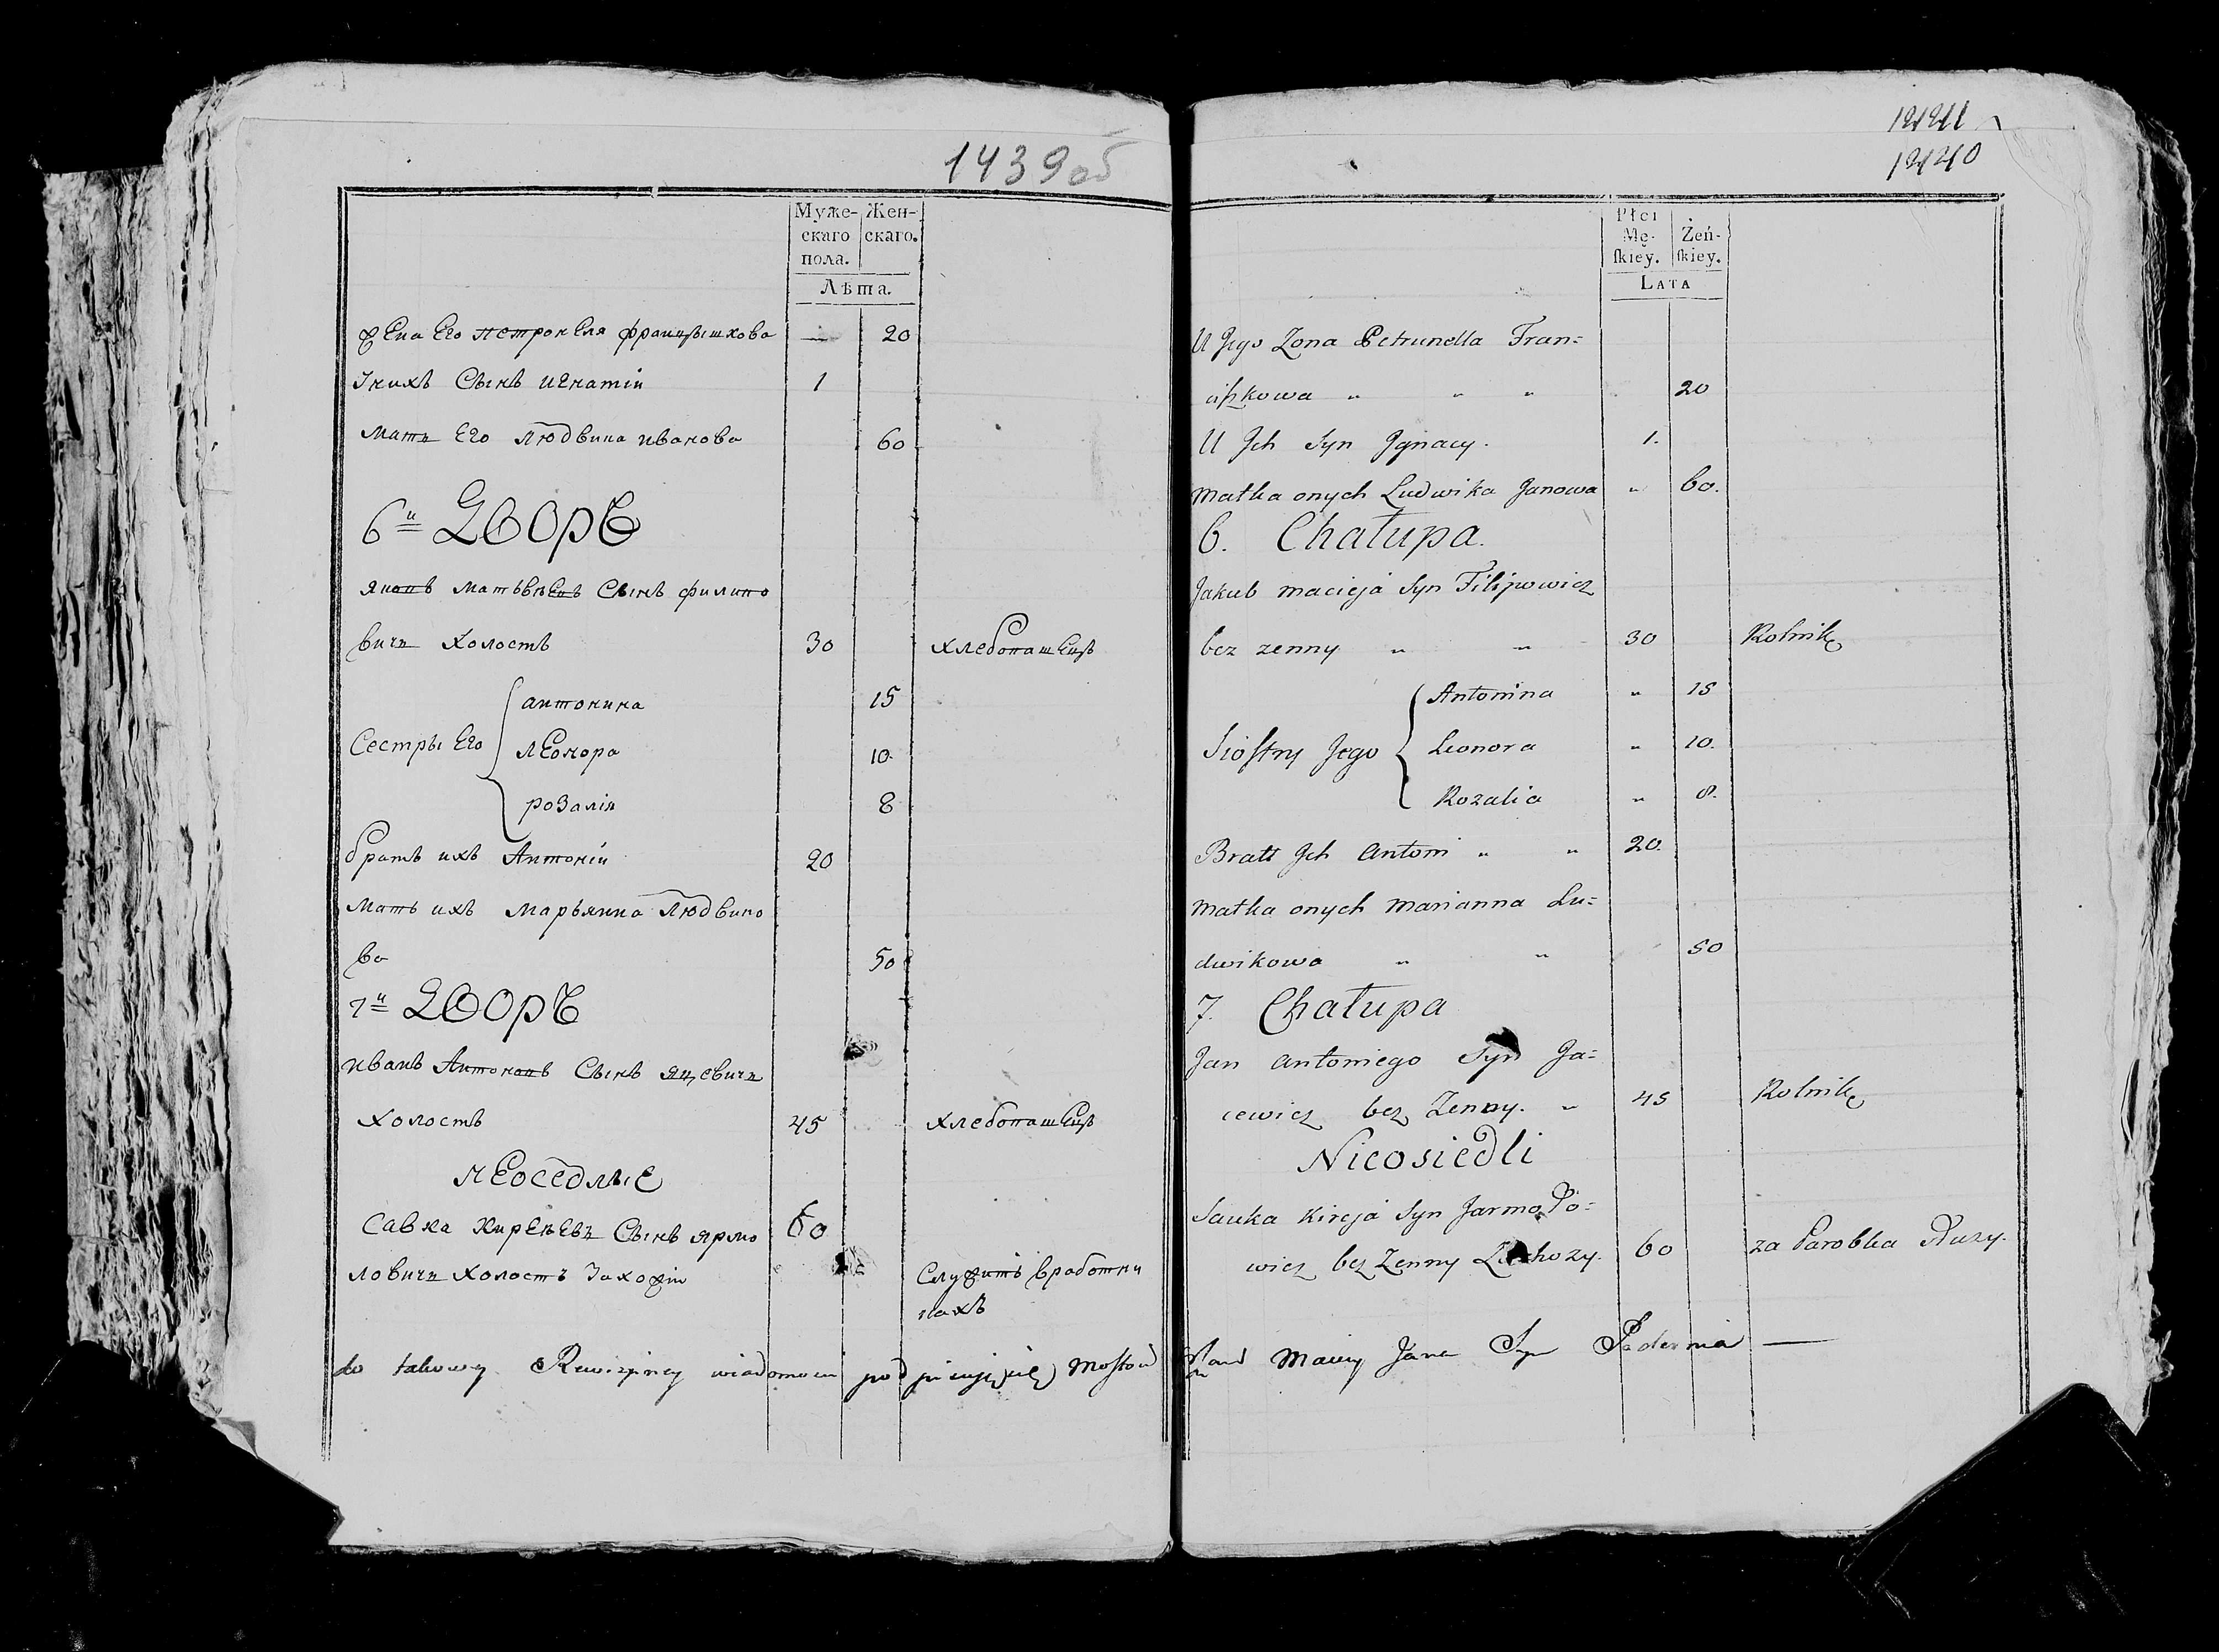 1439об
Муже-
скаго
пола.
Жен-
скаго.
Лѣта.
жена Его петронеля францышкова — 20
Iнихъ Сынъ игнатiй 1
мать Его людвика иванова 60
6й Дворъ
якопъ матьвѣевъ Сынъ филипо
вичь холостъ 30 хлебопашецъ
Сестры Его
антонина 15
леонора 10.
розалiя 8
братъ ихъ Антонiй 20
мать ихъ марьянна людвико
ва 50
7й Дворъ
иванъ Антоновъ Сынъ яцевичь
холостъ 45 хлебопашецъ
неоседлые
савка кирѣевъ Сынъ ярмо 60
ловичь холостъ Захожiй Служитъ вработни
кахъ
do takowey Rewizyiney wiadomości podpisuję się Mostow
12121
12120
Płci
Mę-
skiey.
Żeń-
skiey.
LATA
U Jego Zona Petrunella Fran=
ciszkowa " " " 20
U Jch Syn Jgnacy. 1.
matka onych Ludwika Janowa " 60.
6. Chałupa.
Jakub macieja Syn Filipowicz
bez zenny " " 30 Rolnik
Siostry Jego
Antonina " 15
Leonora " 10.
Rozalia " 8.
Bratt Jch Antoni " " 20.
matka onych marianna Lu=
dwikowa " " 50
7. Chałupa
Jan Antoniego Syn Ja=
cewicz bez Zenny. " 45 Rolnik
Nieosiedli
Sauka Kireja Syn Jarmoło=
wicz bez Zenny Zachozy. 60 za Parobka Służy.
Maciey Jana Syn Padernia —